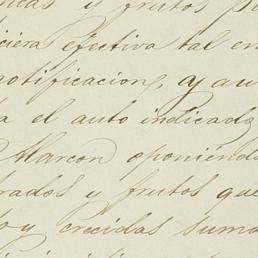 y frutos
efectiva tal en
notificacion, y au
a el auto indicado
Marcon oponiendo
rados y frutos que
y crecidas suma